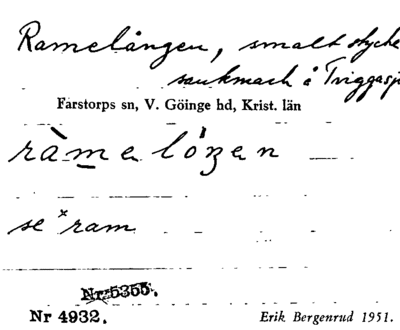 Ramelången, smalt stycke
sankmark å Triggasj
Farstorps sn, V. Göinge hd, Krist. län
ràme lóŋen
se ˣram
Nr 5355.
Nr 4932.
Erik Bergenrud 1951.